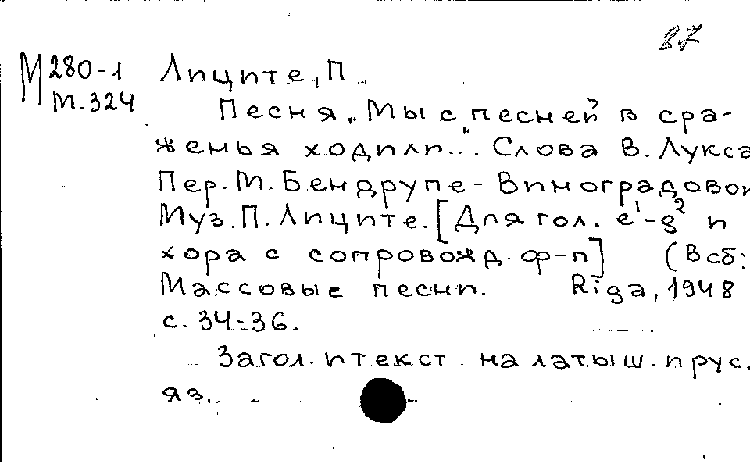 87
М 280-1 Липите, П.
м.324
Песня „Мы с песней в сра-
женья ходили“... Слова В. Лукса
Пер. М. Бендрупе-Виноградовой
Муз. П. Липите. [Для гол. e¹-g² и
хора с сопровожд. ф-п] (В сб:
Массовые песни. Rīga, 1948
с. 34-36.
Загол. и текст на латыш. и рус.
яз.